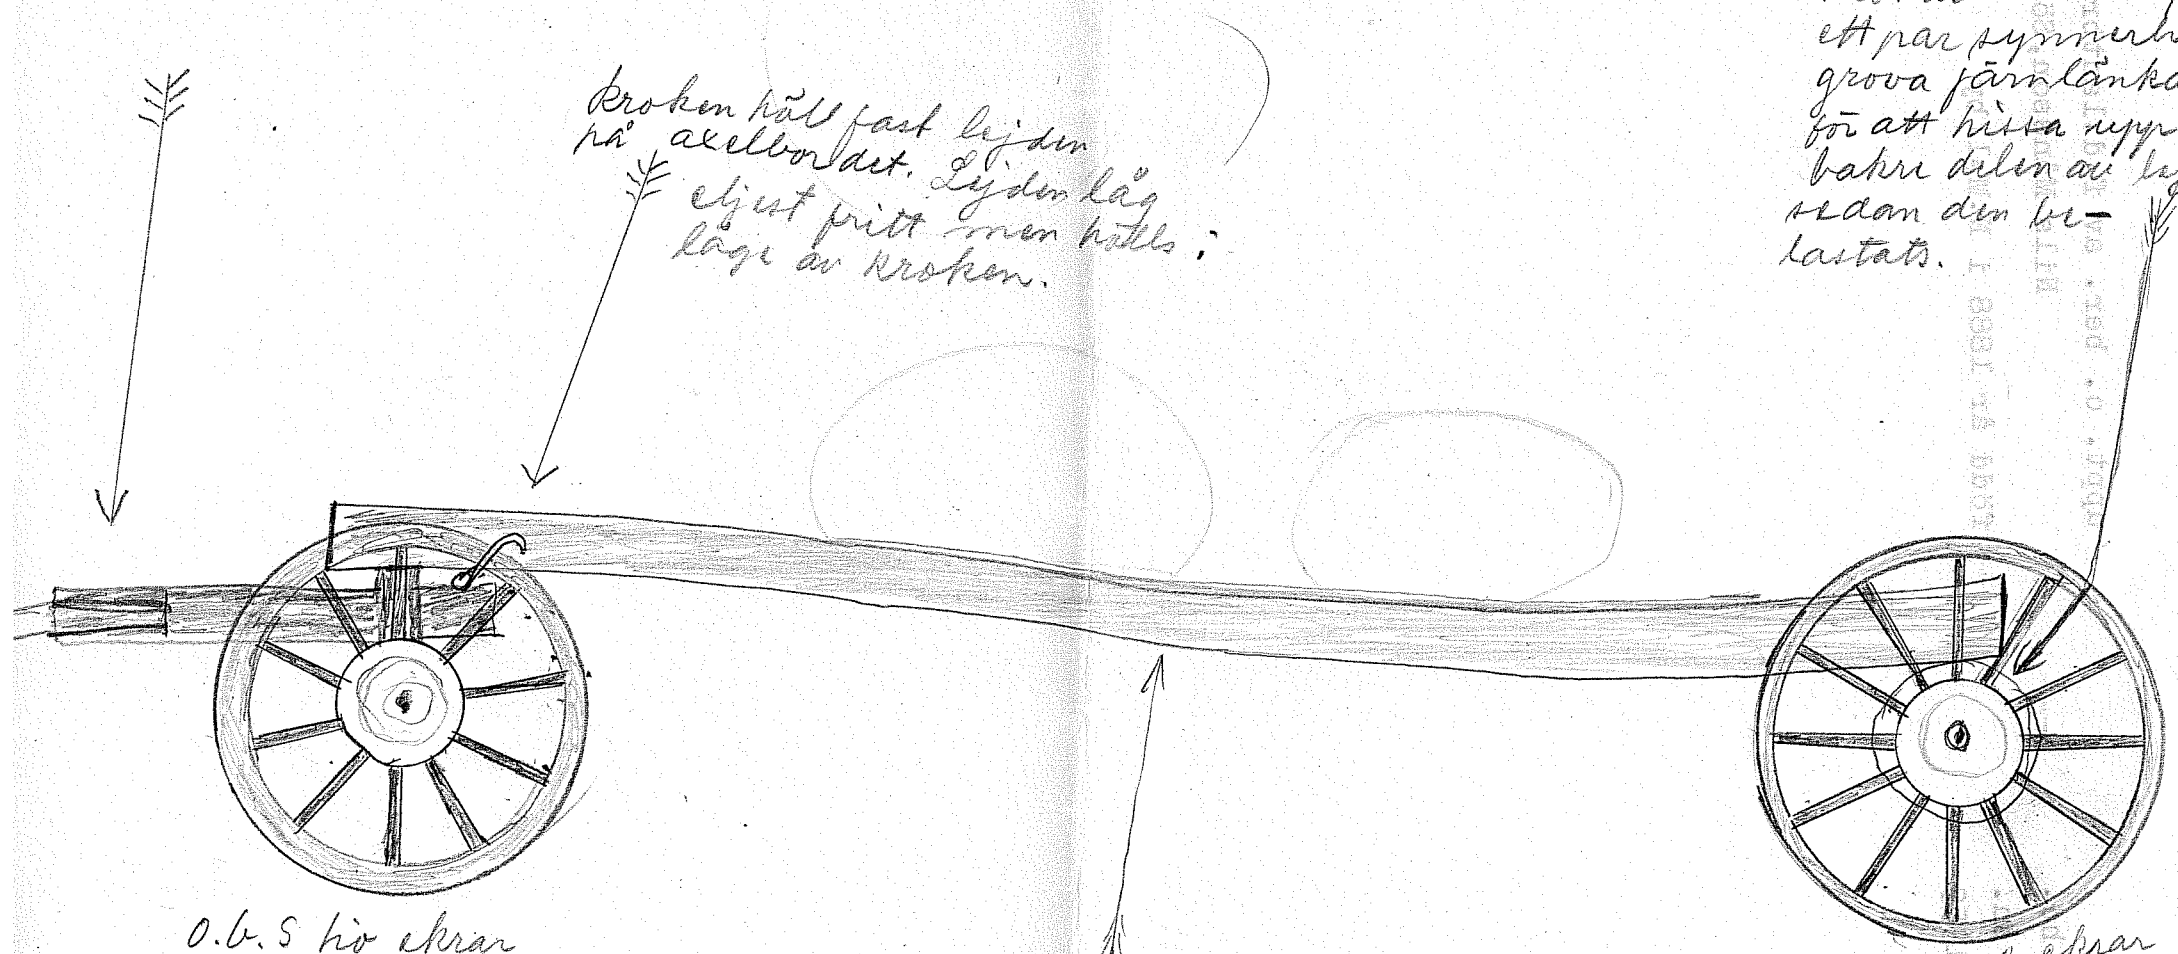 kroken höll fast lejden
på axelbordet. Lejden låg
eljest fritt men hölls i
läge av kroken.
ett par synnerh
grova järnlänka
för att hissa upp
bakre delen av le
sedan den be-
lastats.
o.b.s tio ekrar
ekrar